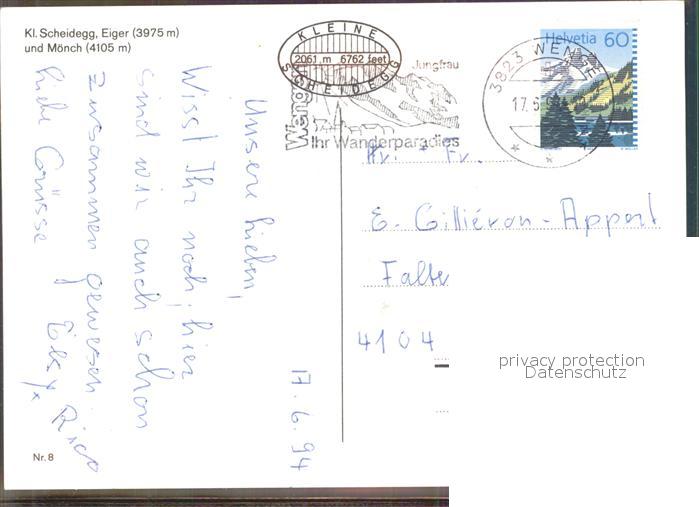 Kl. Scheidegg, Eiger (3975 m)
und Mönch (4105 m)
KLEINE
2061 m 6762 feet
SCHEIDEGG
Jungfrau
Weng
Ihr Wanderparadies
Helvetia 60
3823 WENGEN
17.6.9
17.6.94
Unsere lieben,
Wisst Ihr noch, hier
sind wir auch schon
zusammen gewesen.
Liebe Grüsse
Rico
Hr. + Fr.
E. Gilliéron-Appert
Falte
4104
privacy protection
Datenschutz
Nr. 8